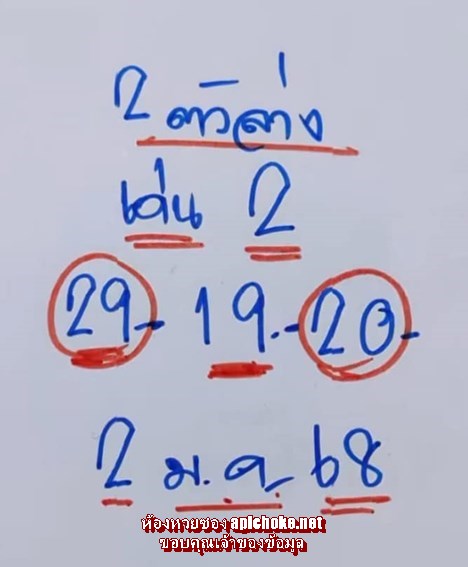 2 ตัวล่าง
เด่น 2
29- 19.-20-
2 ม.ค. 68
ห้องหวยซอง apichoke.net
ขอบคุณเจ้าของข้อมูล